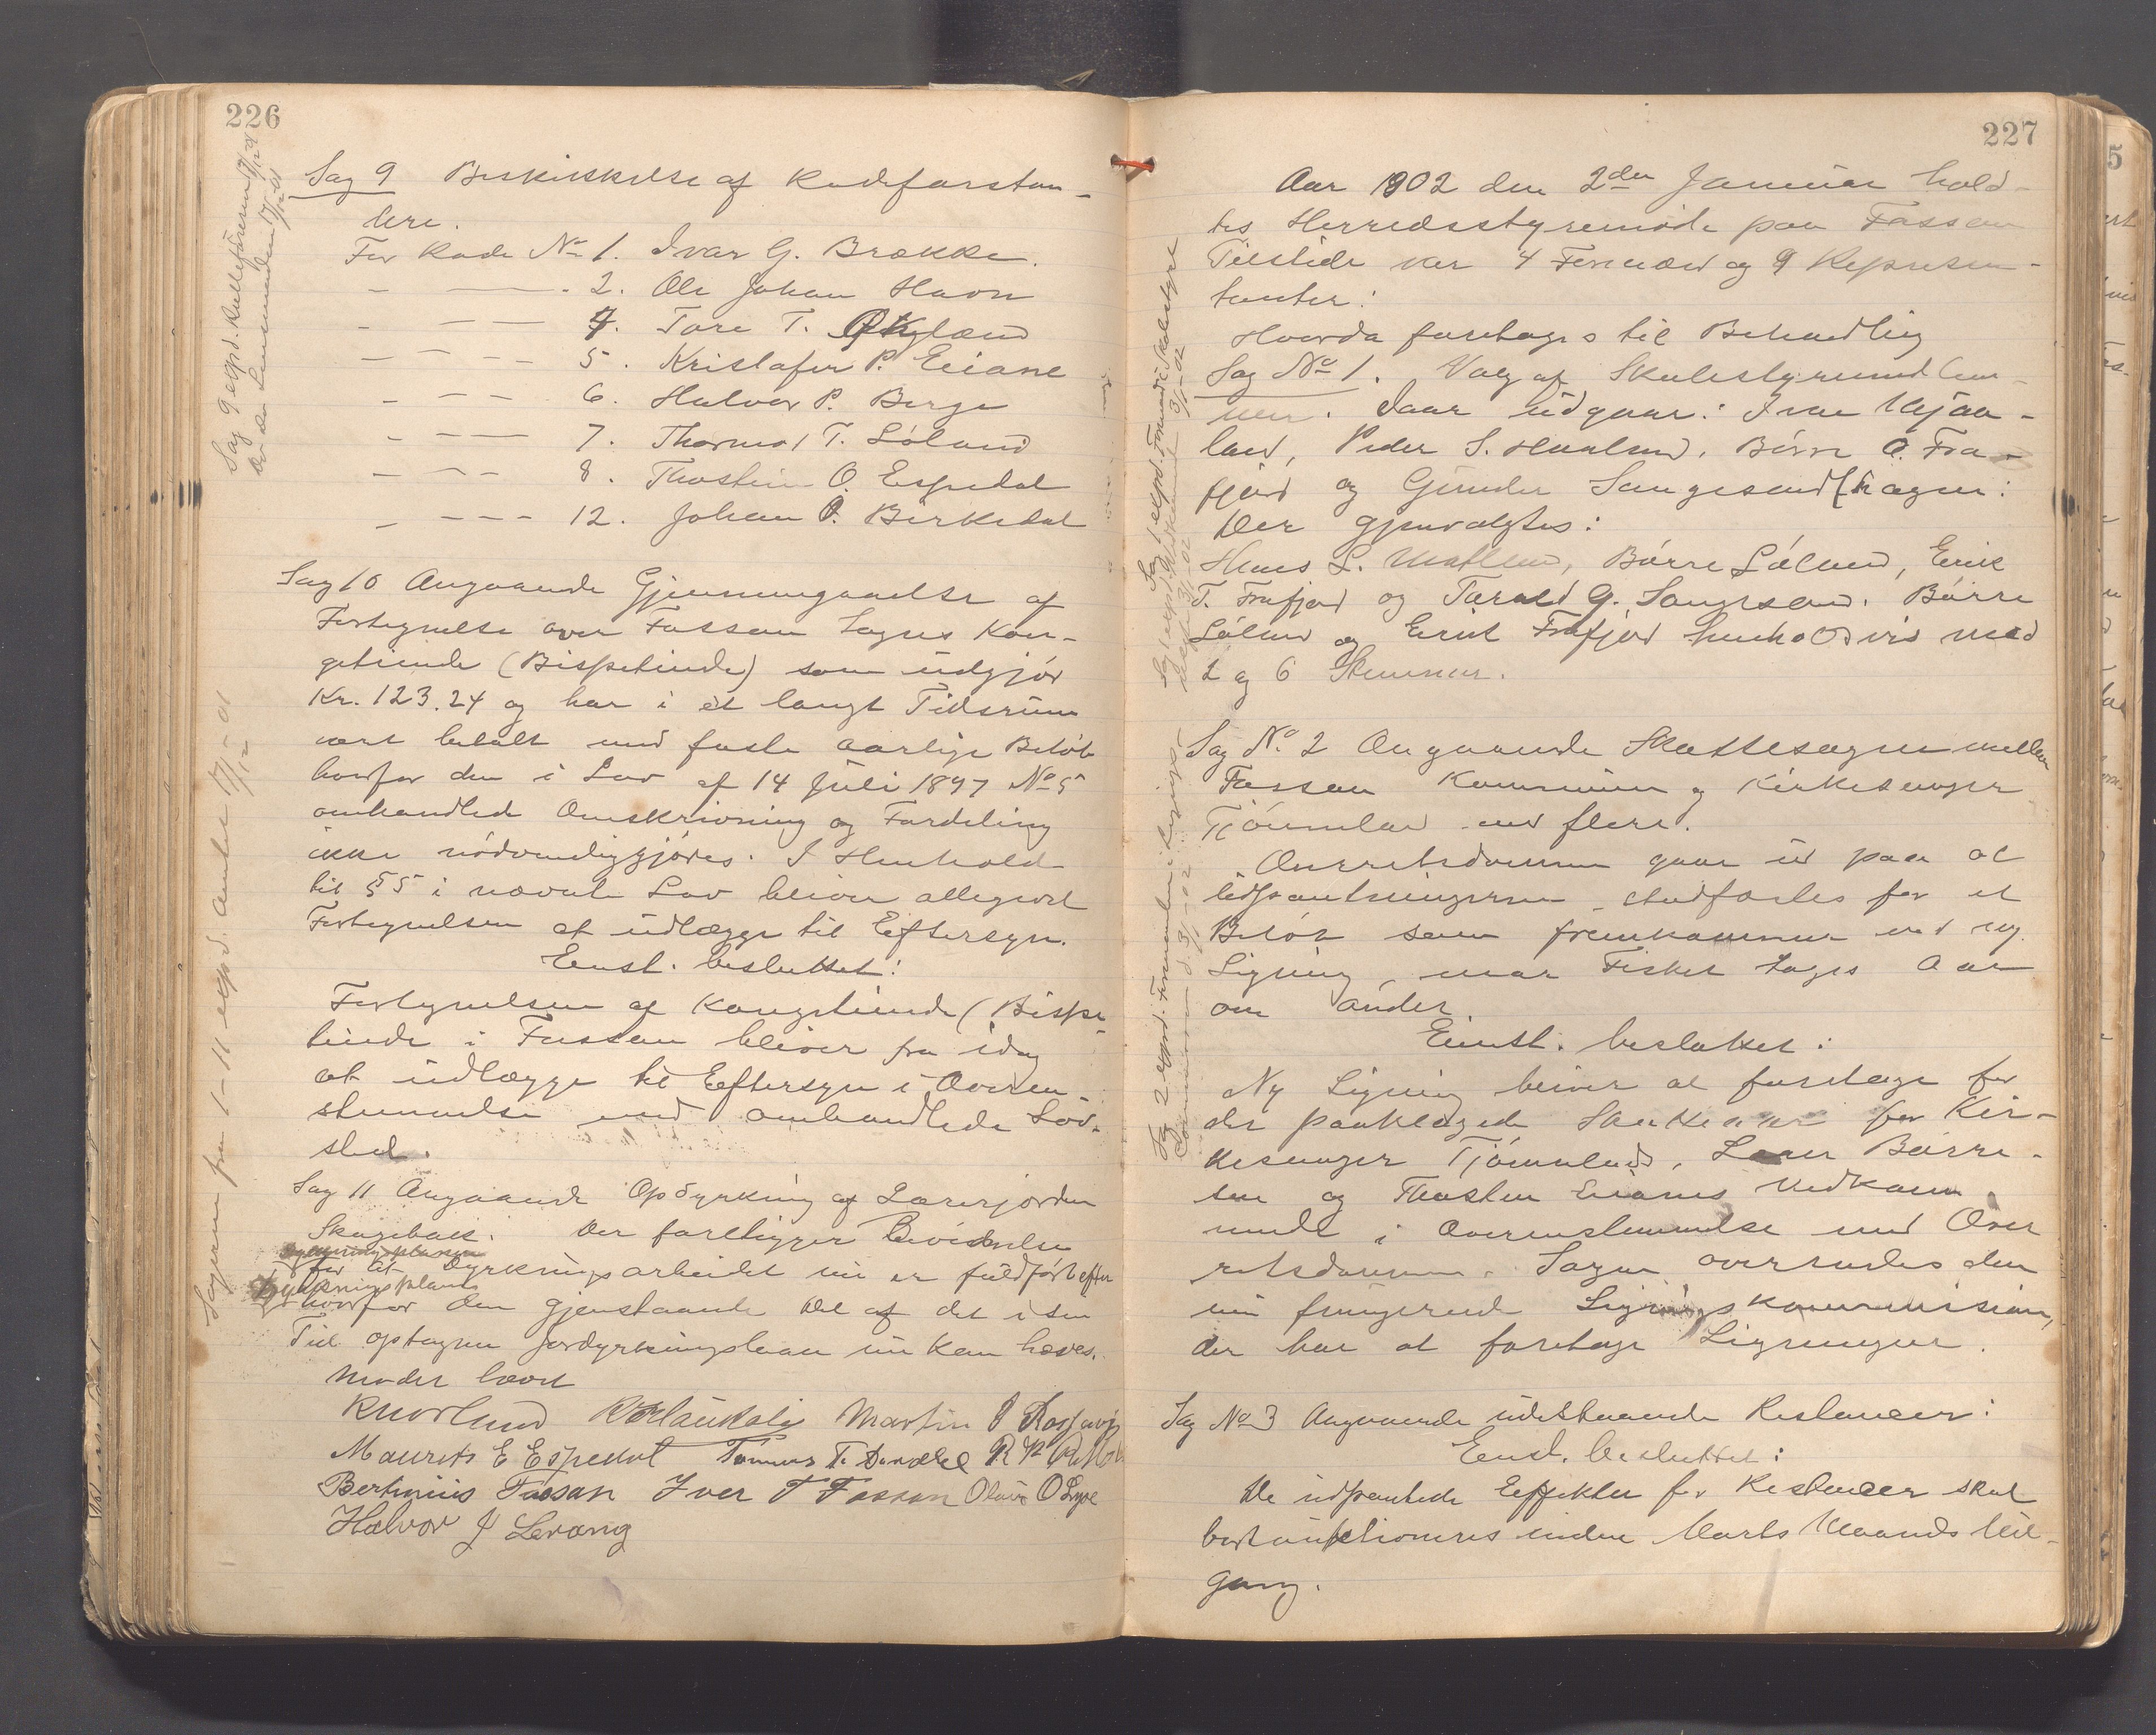 226
Sag 9 Beskikkelse af Rodeforstan-
dere.
For Rode No 1. Ivar G. Brække.
- — . 2. Ole Johan Havn
- — — 4. Tore T. Øfkyland
- — — 5. Kristofer P. Eiane
- - - 6. Halvor P. Berge
- - — 7. Thormod T. Løland
- - - 8. Thostein O. Espedal
- - - - 12. Johan O. Birkedal
Sag 10 Angaaende Gjennemgaaelse af
Fortegnelse over Fossan Sogns Kon-
getiende (Bispetiende) som udgjør
Kr. 123.24 og har i et langt Tidsrum
vært betalt med faste aarlige Beløb
hvorfor den i Lov af 14 Juli 1897 No 5
omhandlede Omskrivning og Fordeling
ikke nødvendiggjøres. I Henhold
til § 5 i nævnte Lov bliver allegevel
Fortegnelsen at udlægge til Eftersyn.
Eenst. besluttet:
Fortegnelsen af Kongetiende (Bispe-
tiende i Fossan bliver fra idag
at udlægge til Eftersyn i Overen-
stemmelse med omhandlede Lov-
sted.
Sag 11 Angaaende Opdyrkning af Lærerjorden
Skogebak. Der foreligger Bevidnelse
for at Dyrkningsarbeidet nu er fuldført efter
Dyrkningsplanen
hvorfor den gjenstaaende Del af det i sin
Tid optagne Jordyrkningslaan nu kan hæves.
Mødet hævet
R Norland Martin
Maurits E Espedal Tønnes T.
Bertinius Fossan Iver T Fossan Olaus O Lyse
Halvor J Levang
Sag 9 expd. Rulleførerne 17/12 01
og da Lensmanden 17/12-01
Sagerne fra 1-11 expd. Amtet 17/12-01
227
Aar 1902 den 2den Januar hold-
tes Herredsstyremøde paa Fossan
Tilstede var 4 Formænd og 9 Represen-
tanter:
Hvorda foretages til Behandling
Sag No 1. Valg af Skolestyremedlem-
mer. Iaar udgaar: Ivar Mjaa-
land, Peder S. Haaland, Børre O. Fra-
fjord og Gunder Songesand
Der gjenvalgtes:
Hans L. Mæland, Børre Løland, Erik
T. Frafjord og Tarald G. Songesand. Børre
Løland og Erik Frafjord henholdsvis med
2 og 6 Stemmer.
Sag No 2 Angaaende Skattesagen mellem
Fossan Kommune og Kirkesanger
Tjømeland med flere.
Overretsdommen gaar ud paa at
Udpantningerne stadfæstes for et
Beløb som fremkommer ved ny
Ligning, naar Fisket tages Aar
om andet.
Eenst. besluttet:
Ny Ligning bliver at foretage for
det paaklagede Skatteaar for Kir-
kesanger Tjømeland, Børre-
sen og Thosten Eianes Vedkom-
mende i Overenstemmelse med Over
retsdommen. Sagen oversendes den
nu fungerende Ligningskommission,
der har at foretage Ligningen.
Sag No 3 Angaaende udestaaende Restancer:
Eenst. besluttet:
De udpantede Effekter for Restancer skal
bortauktioneres inden Marts Maaneds Ud-
gang.
Sag 1 expd. Formand i Skolestyre
3/1-02
Sag 2 expd. Formanden i Lignings-
kommissionen d. 3/1-02